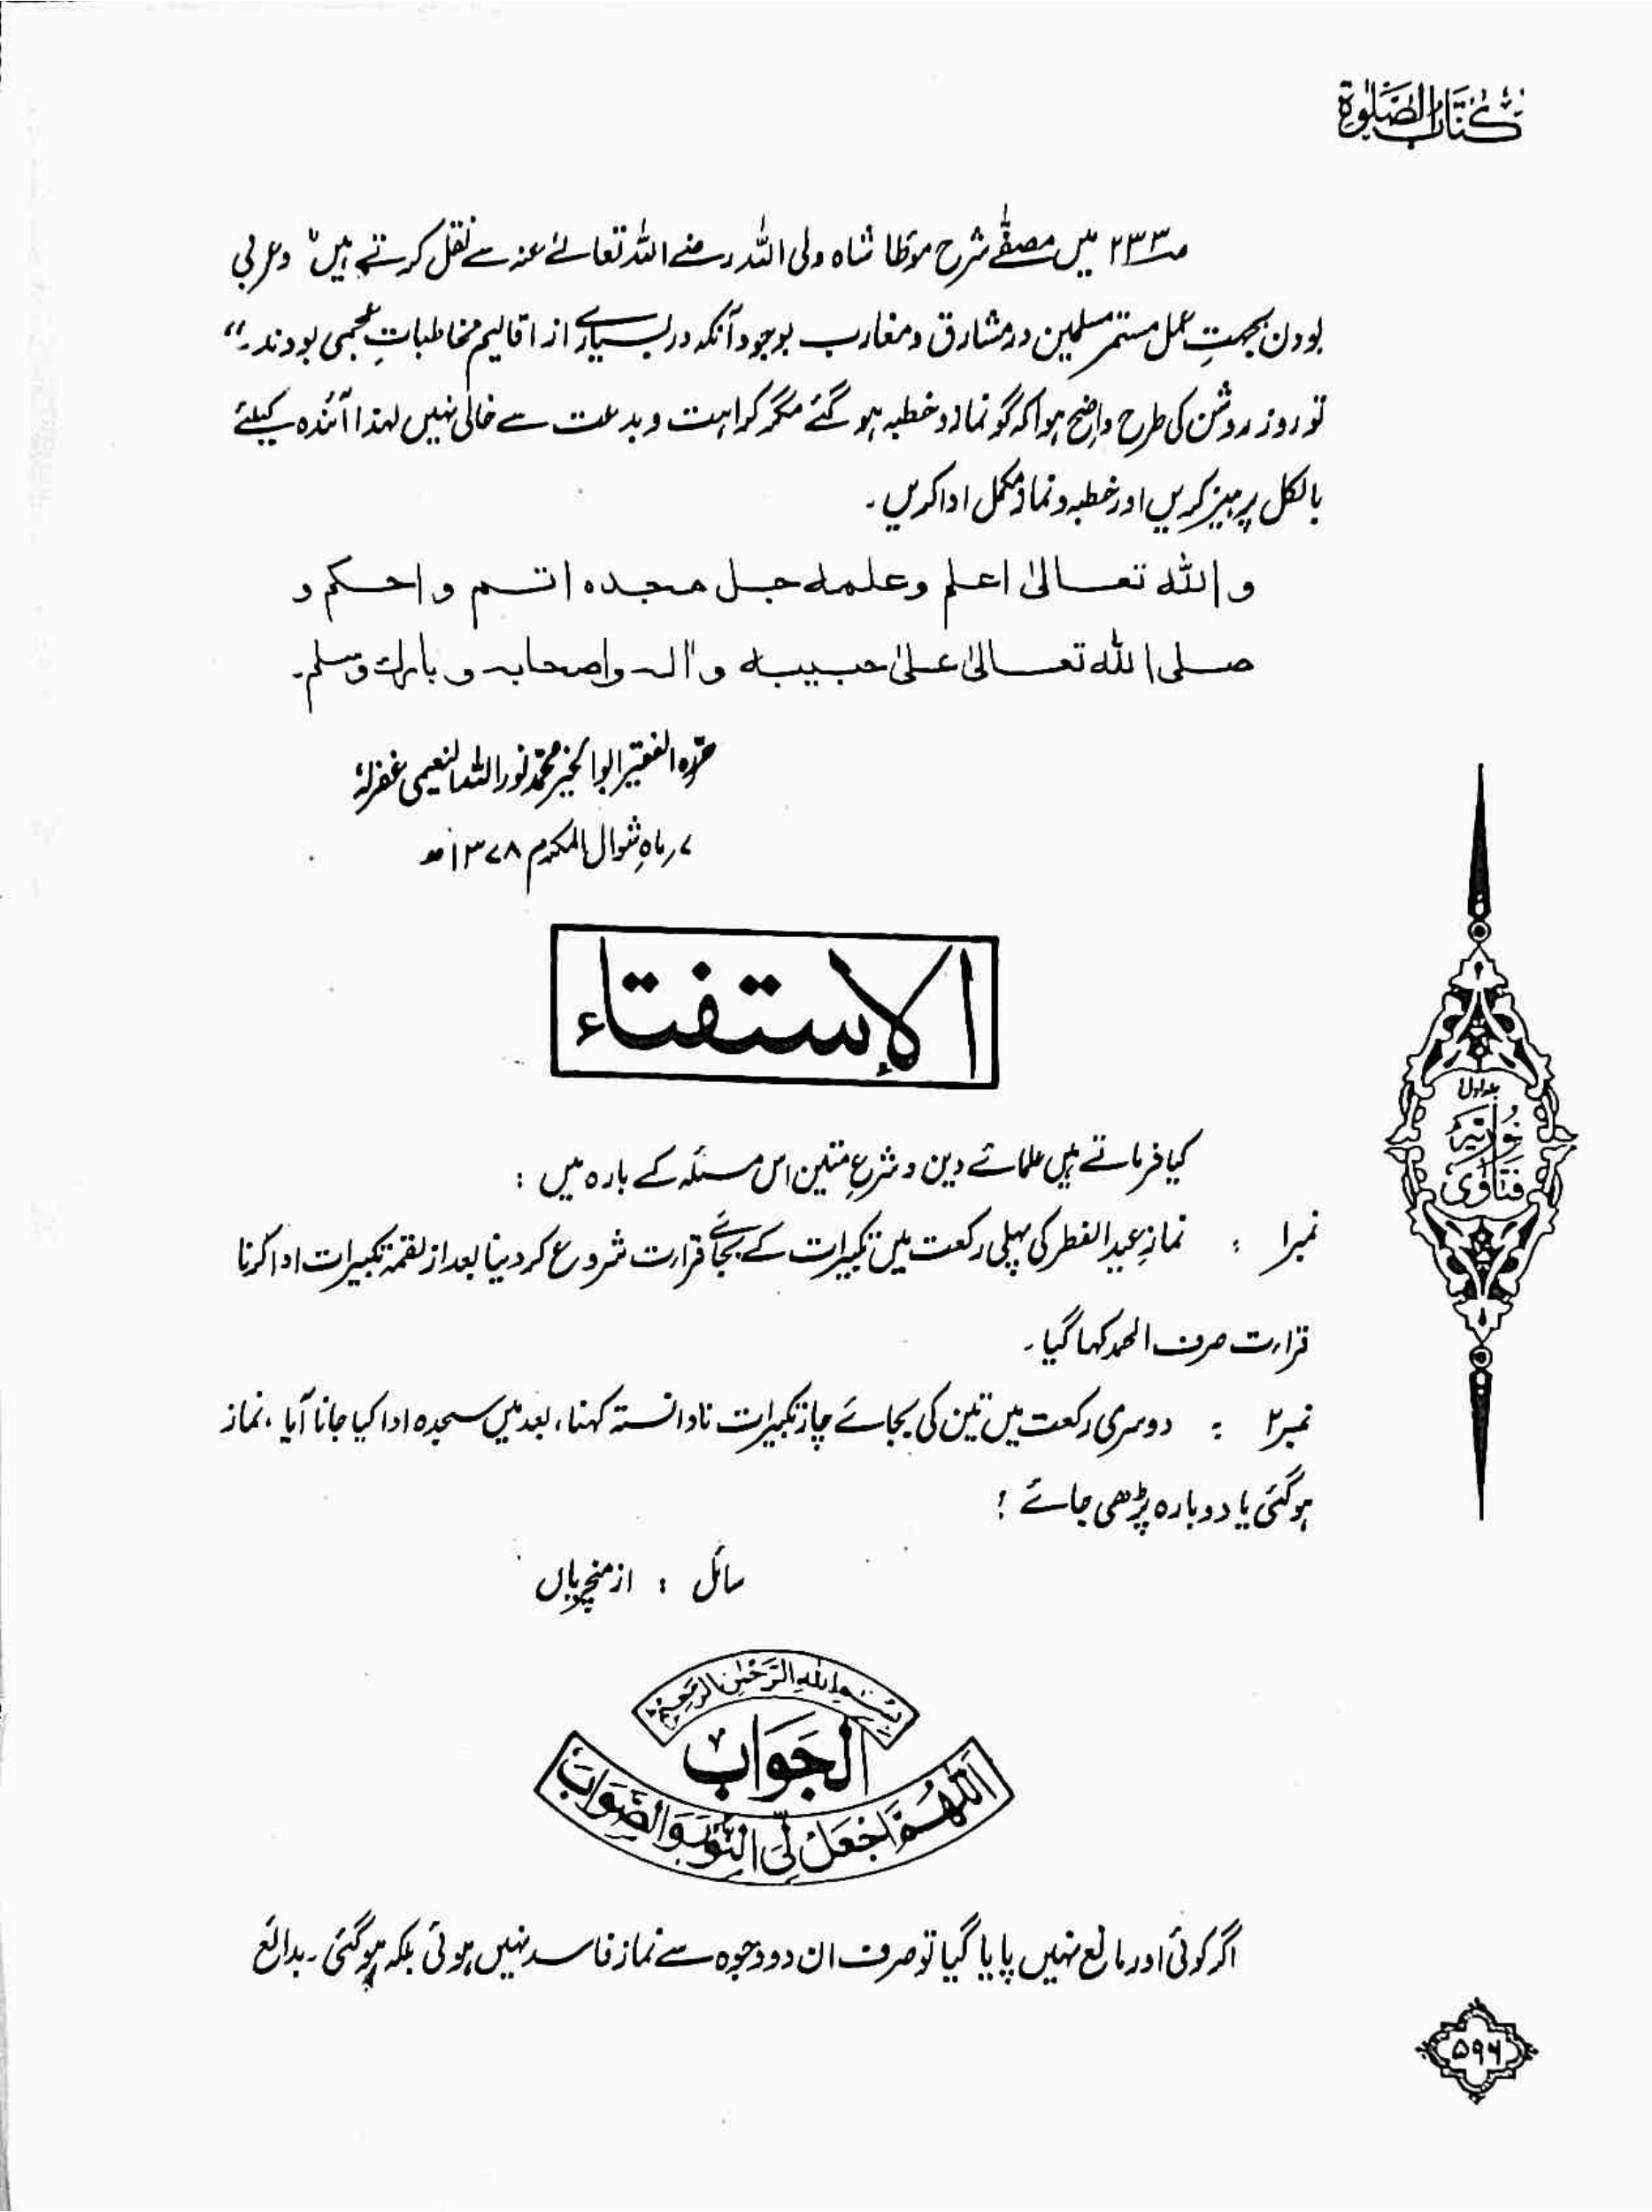 كتاب الصلوٰة
ص۲۳۳ میں مصفّٰے شرح مؤطا شاہ ولی اللہ رضے اللہ تعالےٰ عنہ سے نقل کرتے ہیں "وعربی
بودن بجہتِ عمل مستمر مسلمین در مشارق و مغارب بوجود آنکہ در بسیارے از اقالیم مخاطباتِ عجمی بودند۔"
تو روز روشن کی طرح واضح ہوا کہ گو نماز و خطبہ ہو گئے مگر کراہت و بدعت سے خالی نہیں لہٰذا آئندہ کیلئے
بالکل پرہیز کریں اور خطبہ و نماز مکمل ادا کریں۔
و الله تعالىٰ اعلم وعلمه جل مجده اتم و احكم و
صلى الله تعالىٰ علىٰ حبيبه و اٰله واصحابه و بارك وسلم۔
حرّرہ الفقیر ابو الخیر محمّد نور اللہ النعیمی غفرلہٗ
۷ر ماہِ شوال المکرم ۱۳۷۸ھ
الإستفتاء
کیا فرماتے ہیں علمائے دین و شرعِ متین اس مسئلہ کے بارہ میں :
نمبر۱ : نمازِ عید الفطر کی پہلی رکعت میں تکبیرات کے بجائے قرارت شروع کر دینا بعد از لقمہ تکبیرات ادا کرنا
قرارت صرف الحمد کہا گیا۔
نمبر۲ : دوسری رکعت میں تین کی بجائے چار تکبیرات نادانستہ کہنا، بعد میں سجدہ ادا کیا جانا آیا، نماز
ہو گئی یا دوبارہ پڑھی جائے ؟
سائل : از منچریاں
جلد اول
فتاوٰی نوریہ
بسم الله الرحمٰن الرحيم
الجَوَاب
اللّٰهُمَّ اجْعَلْ لِّيَ النُّوْرَ وَالصَّوَابَ
اگر کوئی اور مانع نہیں پایا گیا تو صرف ان دو وجوہ سے نماز فاسد نہیں ہوئی بلکہ ہو گئی۔ بدائع
۵۹۶